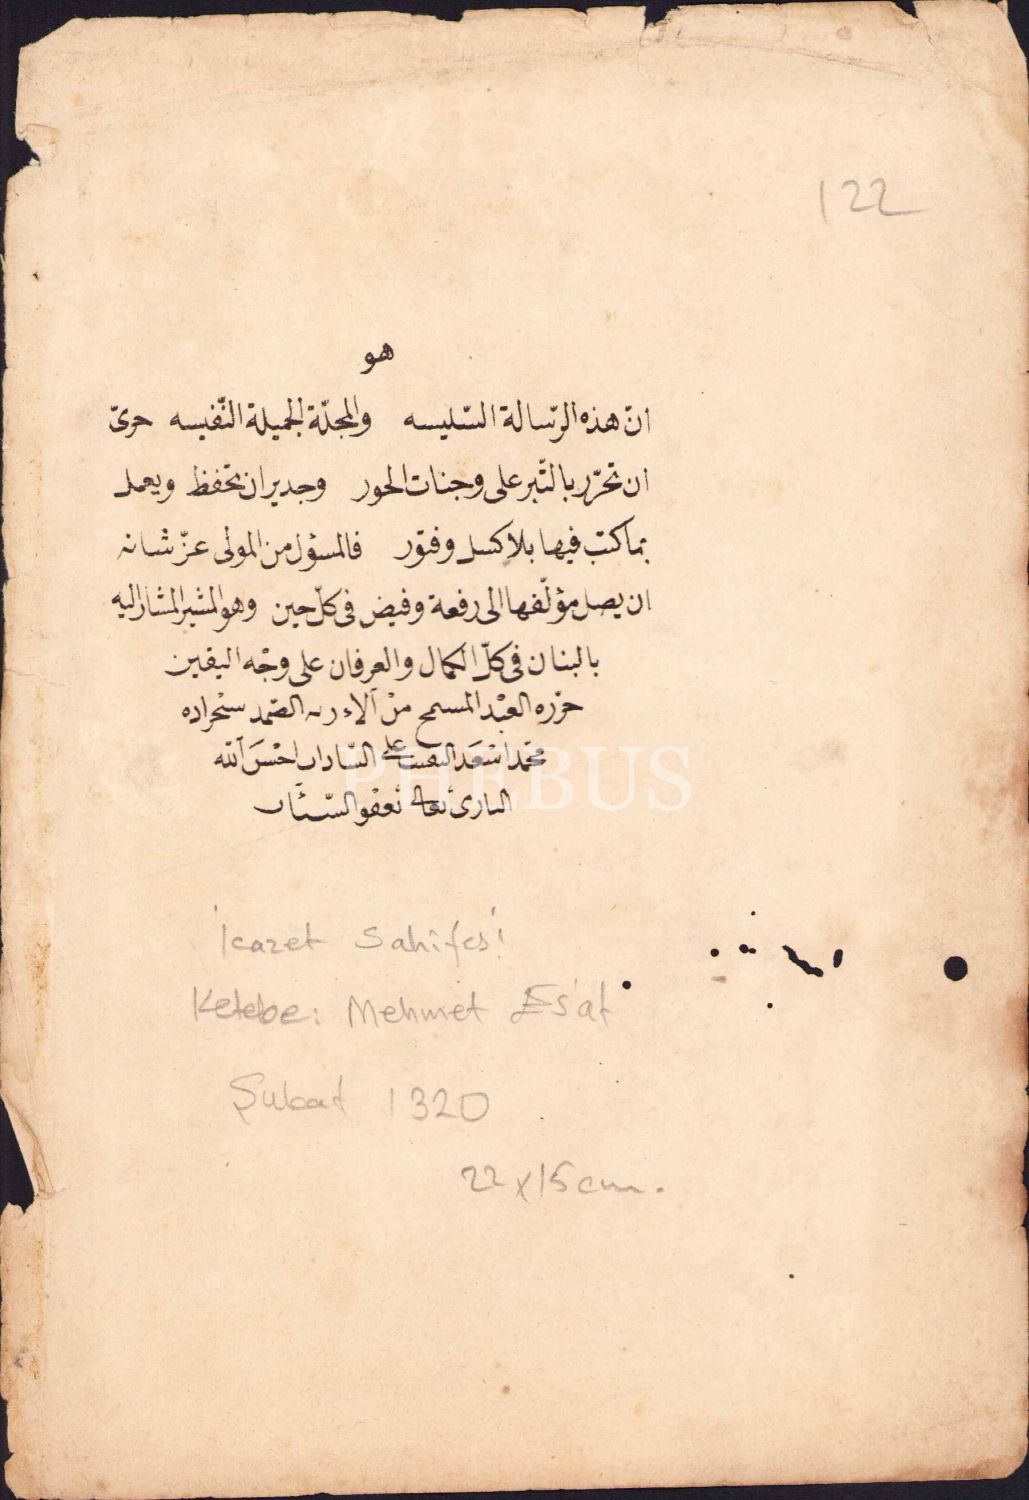 122
هو
انّ هذه الرّسالة السّليسه والمجلّة الجميلة النّفيسه حرىّ
ان تحرّر بالتّبر على وجنات الحور وجدير ان تحفظ ويعمل
بما كتب فيها بلا كسل وفتور فالمسؤل من المولى عزّ شانه
ان يصل مؤلّفها الى رفعة وفيض فى كلّ حين وهو المشير المشار اليه
بالبنان فى كلّ الكمال والعرفان على وجه اليقين
حرّره العبد من آلاء ربه الصّمد
محمّد اسعد احسن الله
البارى تعالى بعفو
PHEBUS
İcazet Sahifesi
Ketebe: Mehmet Es'at
Şubat 1320
22x15cm.